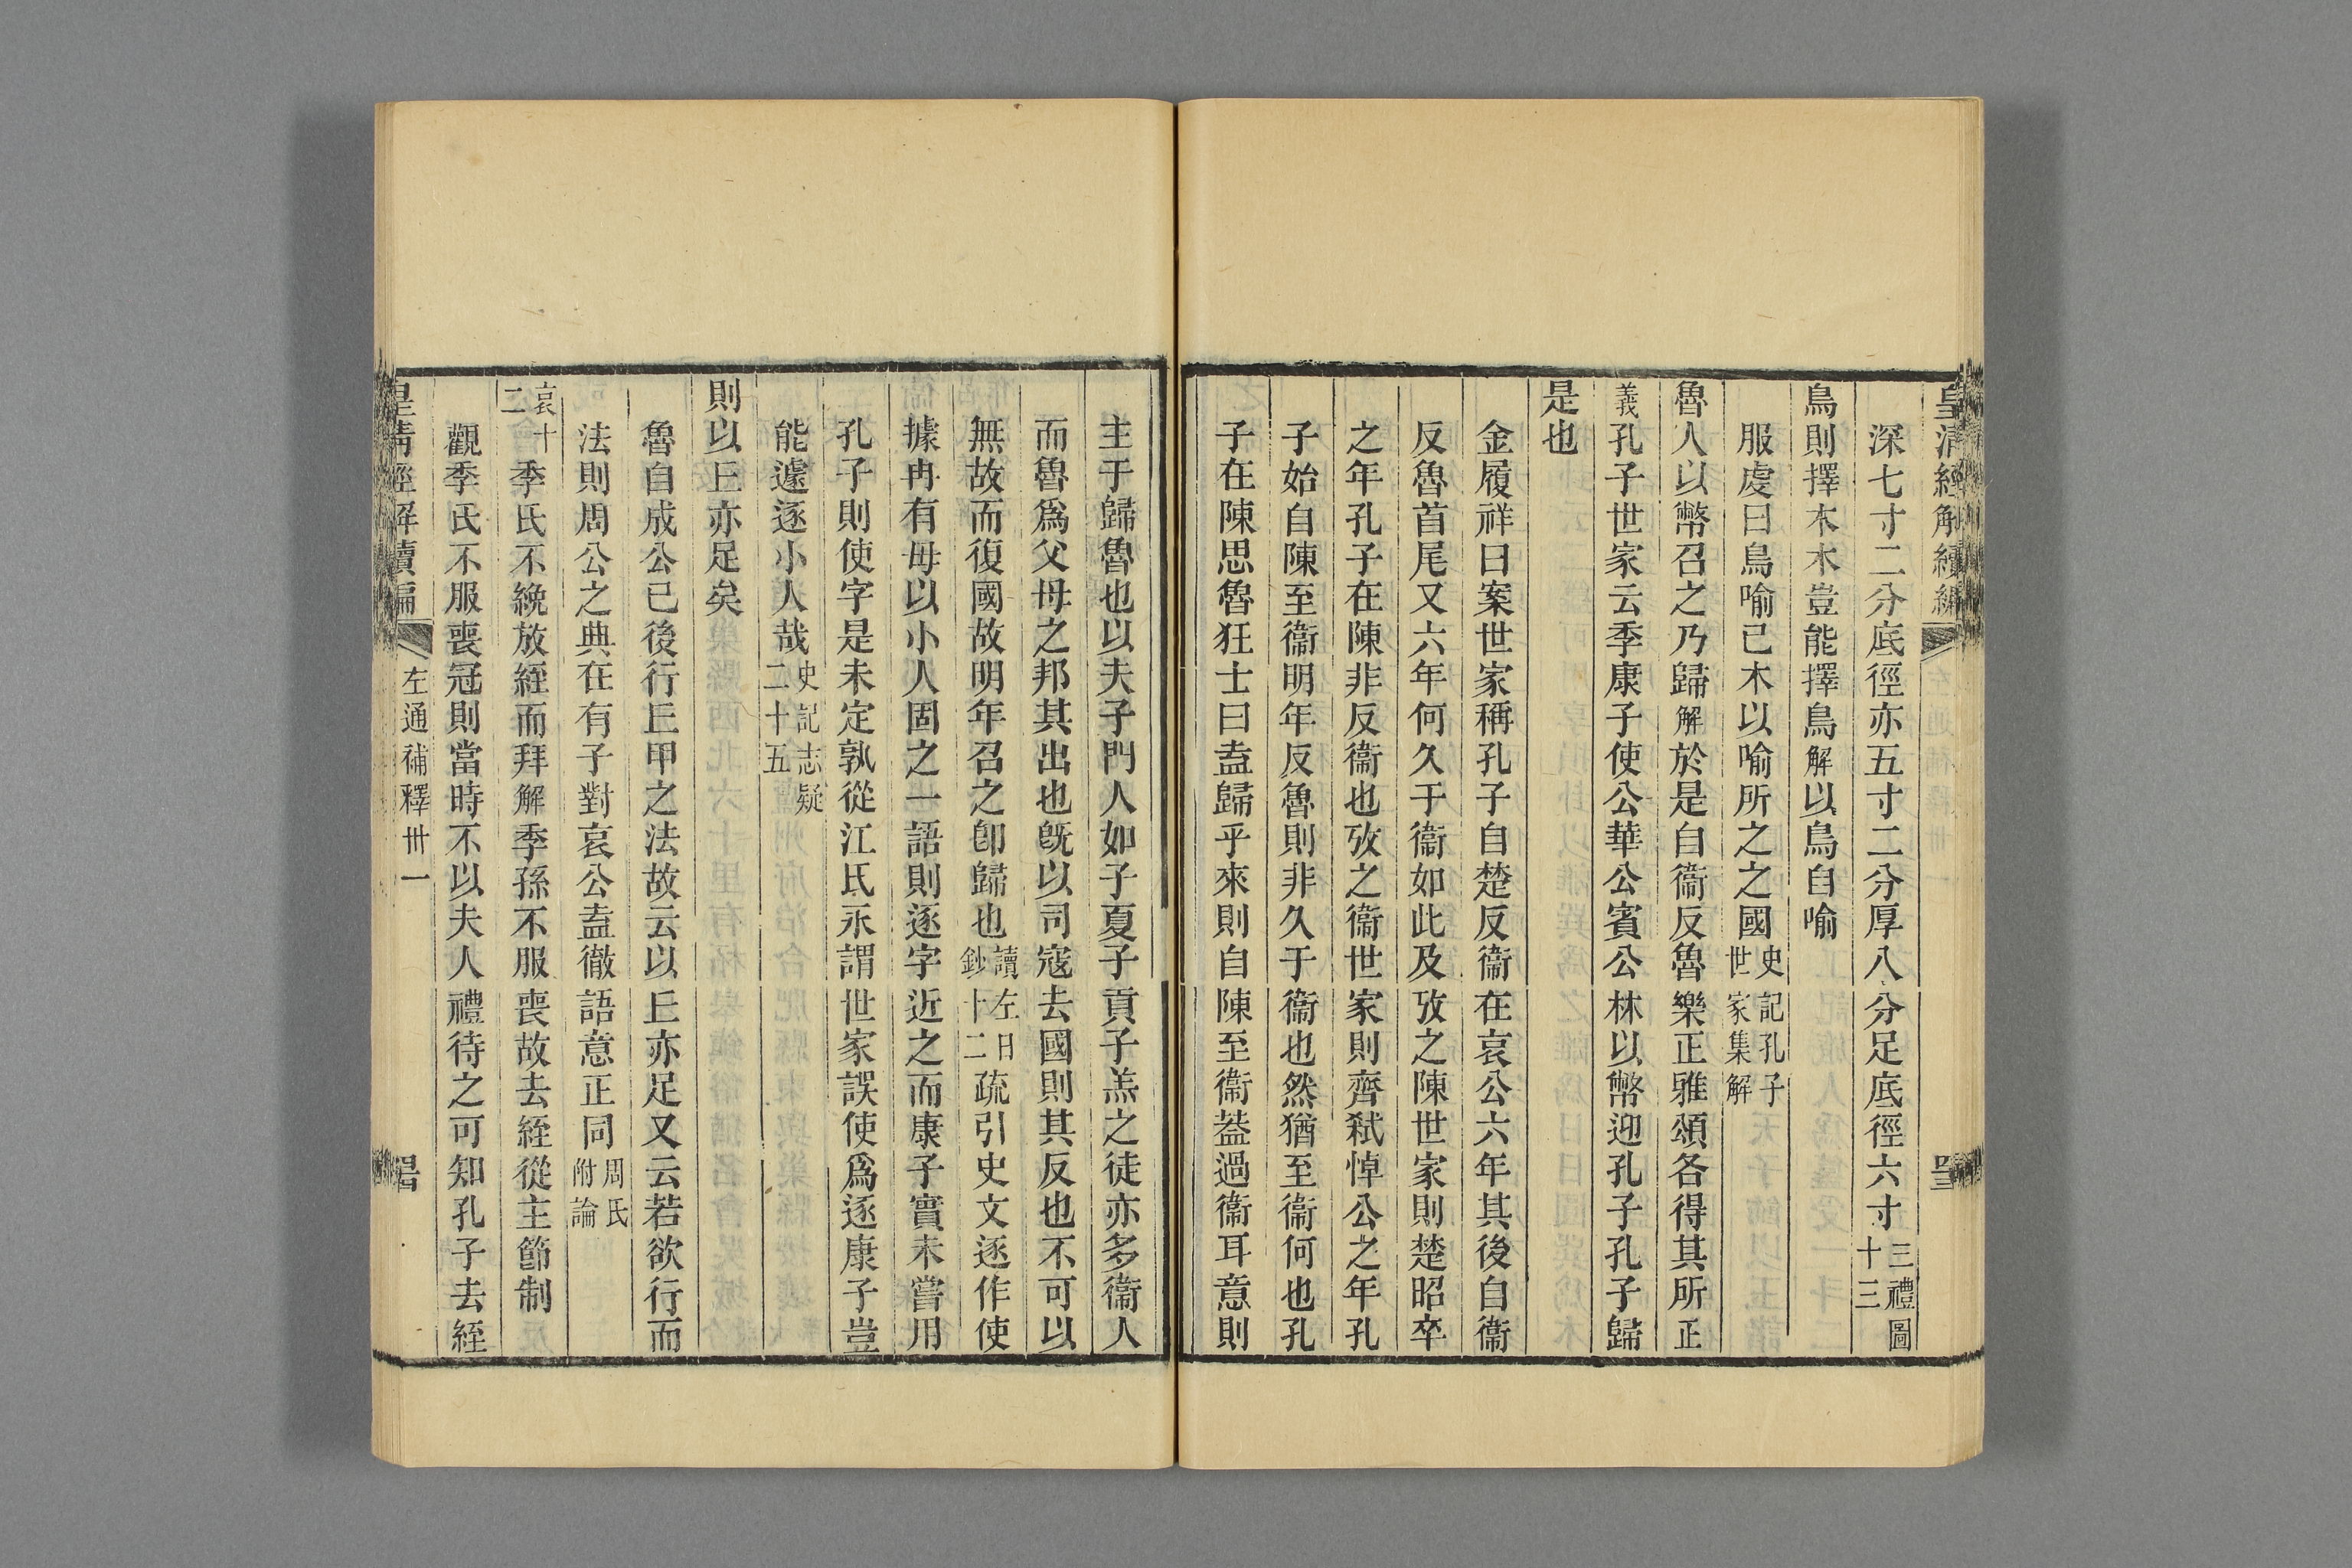 皇清經解續編
深七寸二分底徑亦五寸二分厚八分足底徑六寸三禮圖十三
鳥則擇木木豈能擇鳥解以鳥自喻
服虔曰鳥喻己木以喻所之之國史記孔子世家集解
魯人以幣召之乃歸解於是自衞反魯樂正雅頌各得其所正
義孔子世家云季康子使公華公賓公林以幣迎孔子孔子歸
是也
金履祥曰案世家稱孔子自楚反衞在哀公六年其後自衞
反魯首尾又六年何久于衞如此及攷之陳世家則楚昭卒
之年孔子在陳非反衞也攷之衞世家則齊弒悼公之年孔
子始自陳至衞明年反魯則非久于衞也然猶至衞何也孔
子在陳思魯狂士曰盍歸乎來則自陳至衞葢過衞耳意則
主于歸魯也以夫子門人如子夏子貢子羔之徒亦多衞人
而魯爲父母之邦其出也旣以司寇去國則其反也不可以
無故而復國故明年召之卽歸也讀左日鈔十二疏引史文逐作使
據冉有毋以小人固之一語則逐字近之而康子實未嘗用
孔子則使字是未定孰從江氏永謂世家誤使爲逐康子豈
能遽逐小人哉史記志疑二十五
則以丘亦足矣
魯自成公已後行丘甲之法故云以丘亦足又云若欲行而
法則周公之典在有子對哀公盍徹語意正同周氏附論
哀十二季氏不絻放絰而拜解季孫不服喪故去絰從主節制
觀季氏不服喪冠則當時不以夫人禮待之可知孔子去絰
皇清經解續編
左通補釋卅一